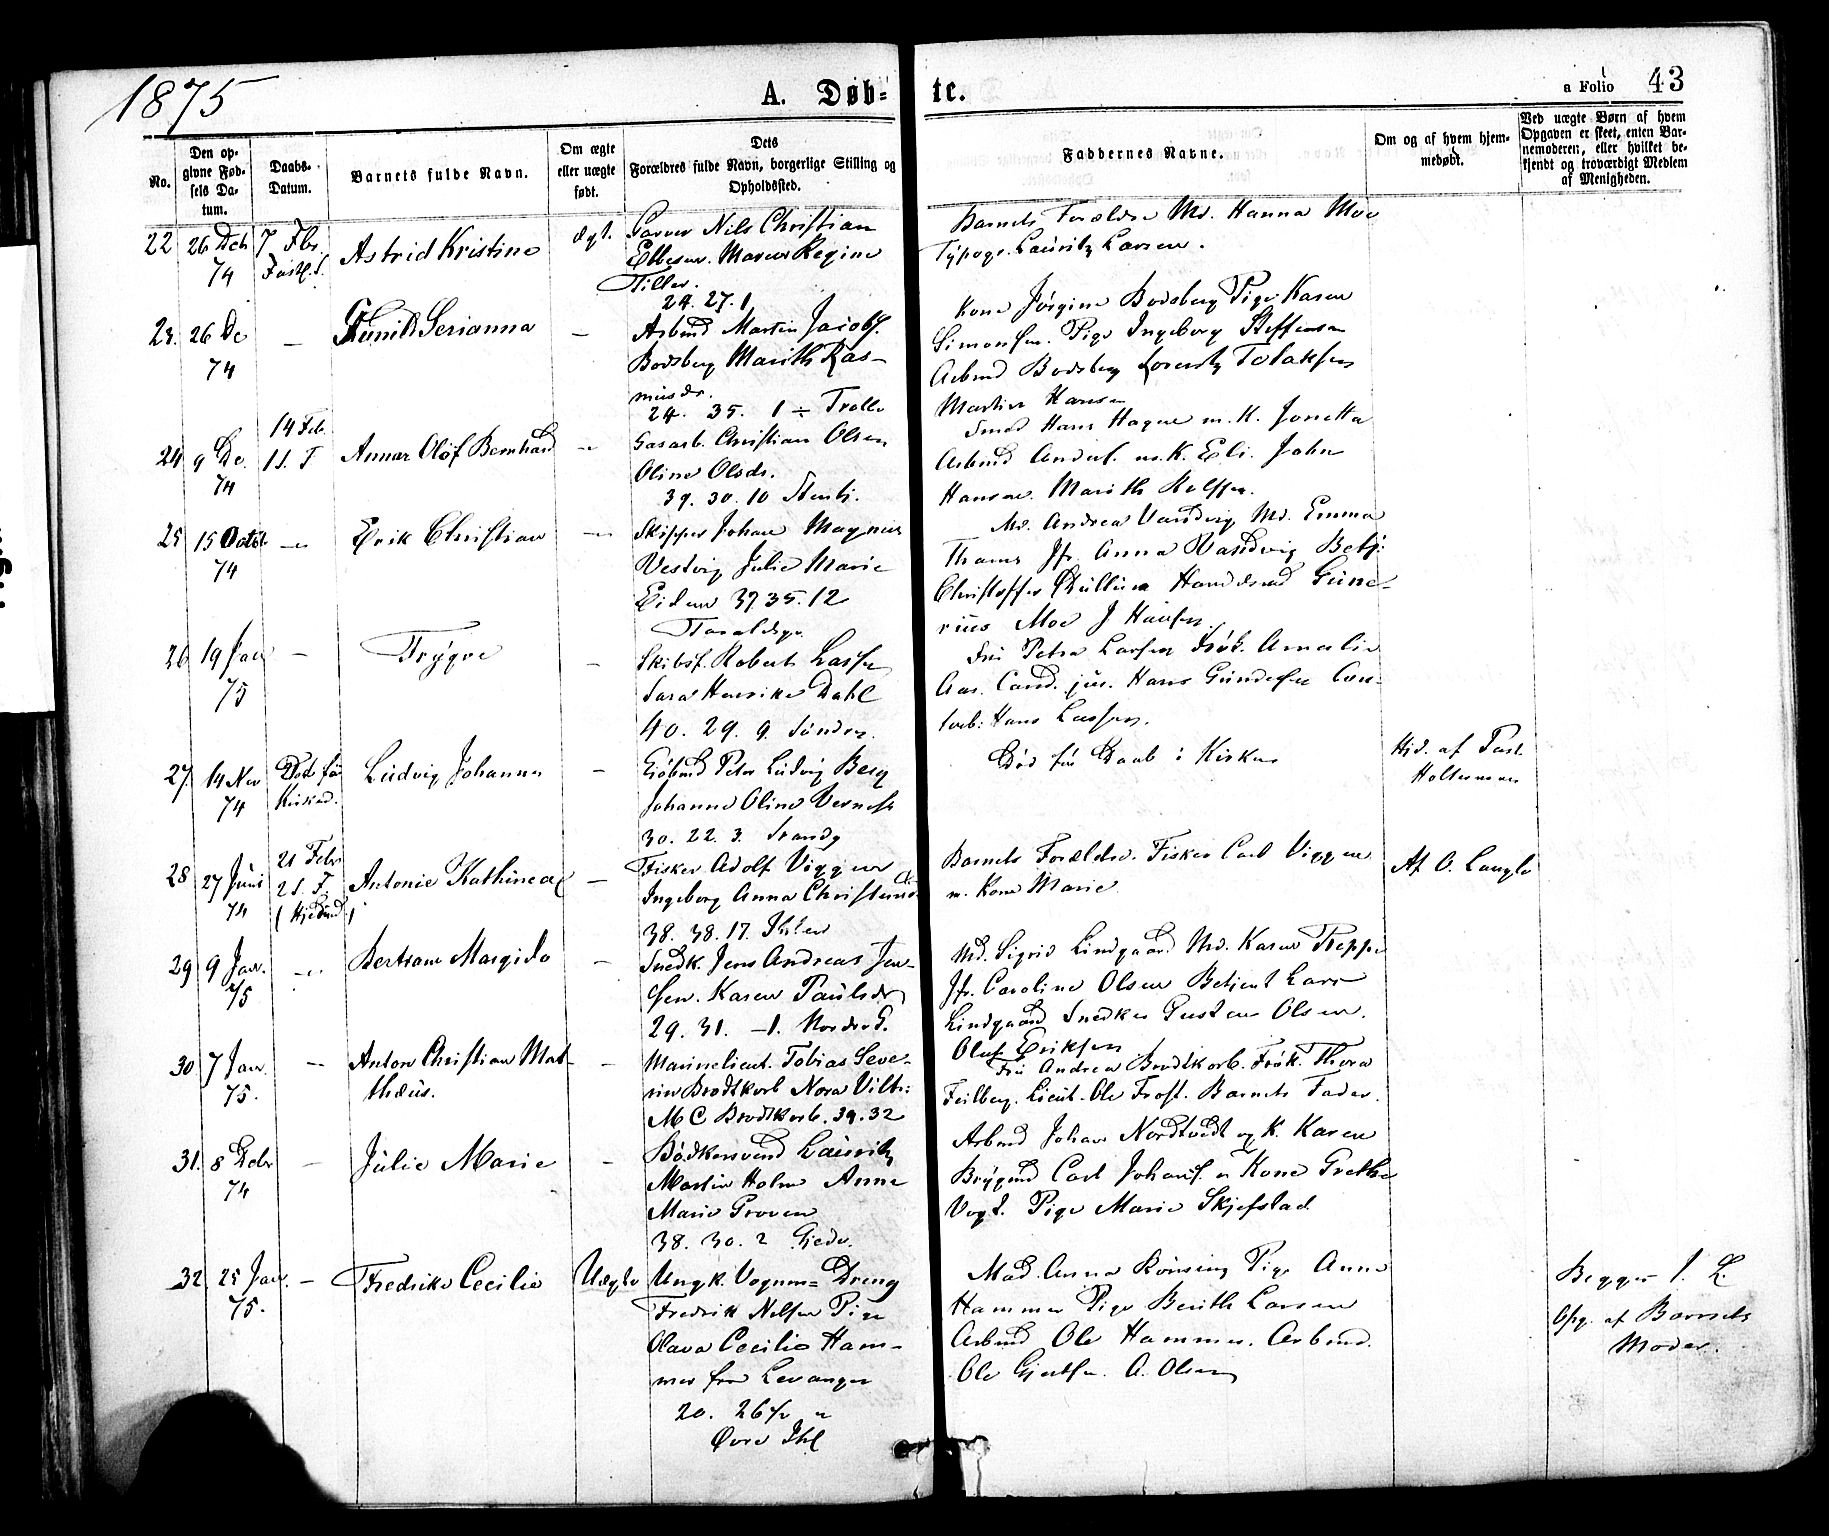 1875
A. Døb-
te.
a Folio 43
No.
Den op-
givne Fød-
sels Da-
tum.
Daabs-
Datum.
Barnets fulde Navn.
Om ægte
eller uægte
født.
Dets
Forældres fulde Navn, borgerlige Stilling og
Opholdssted.
Faddernes Navne.
Om og af hvem hjem-
medøbt.
Ved uægte Børn af hvem
Opgaven er skeet, enten Bar-
nemoderen, eller hvilket be-
kjendt og troværdigt Medlem
af Menigheden.
22 26 Deb 7 Fbr Astrid Kristine ægt. Garver Nils Christian
74 Fastl. S. Ebbesen. Maren Regine
Tiller.
24. 27. 1
Barnets Forældre Md. Hanna Moe
Typogr. Lauritz Larsen.
23. 26 De Serianna Arbmd Martin Jacobs.
74 Bodsberg Marith Ras-
musdr.
24. 35. 1 ÷ Trolle
Kone Jørgine Bodsberg Pige Karen
Simonsen. Pige Ingeborg Steffensen
Arbmd Bodsberg Lorentz Tolaksen
Martin Hansen
24 9 De. 14 Feb. Annar Olof Bernhard Gasarb. Christian Olsen
74 1 S. F Oline Olsdr.
39. 30. 10 Stenb.
Smed Hans Hagen m. K. Jonetta
Arbmd Anders. m. K. Eli. John
Hansen. Marith Rolffsen.
25 15 Octob Erik Christian Skipper Johan Magnus
74 Vestvig Julie Marie
Eidem 37 35. 12
Md. Andrea Vandvig Md. Emma
Thams Jfr. Anna Vandvig Betj.
Christoffer Rullum Handelsmd Gune-
rius Moe J Hansen.
26 19 Jan Trygve Skibsf. Robert Larsen
75 Sara Henrikke Dahl
40. 29. 9. Søndre.
Fru Petra Larsen Frøk. Amalie
Aas. Cand. jur. Hans Gundersen Con-
torb: Hans Larsen.
27. 14 Nov Død før Ludvig Johannes Gjøbmd Peter Ludvig Berg
74 Kirked. Johanne Oline Vernesk
30. 22. 3. Strandg
Død før Daab i Kirken
Hjd. af Past.
Holterman
28 27 Juni 21 Febr Antonie Kathinca Fisker Adolf Viggen
74 2 S. F. Ingeborg Anna Christensd
( Hjeded ) 38. 38. 17. Ihlen
Barnets Forældre. Fisker Carl Viggen
m. Kone Marie.
Af O. Langlo
29 9 Jan. Bertram Margido Snedk. Jens Andreas Jen-
75 sen. Karen Paulsdr
29. 31. -1. Nordre G.
Md. Sigrid Lindgaard Md. Karen Reppe
Jfr. Caroline Olsen Betjent Lars
Lindgaard Snedker Gustav Olsen.
Oluf Eriksen
30 7 Jan. Anton Christian Mat- Marinelieut. Tobias Seve-
75. thæus. rin Brodtkorb Nora Vilh:
M C Brodtkorb. 39. 32
Fru Andrea Brodtkorb. Frøk. Thora
Feilberg. Lieut. Ole Frost. Barnets Fader.
31. 8 Debr Julie Marie Bødkersvend Lauritz
74 Martin Holm Anne
Marie Groven
38. 30. 2 Gjedv.
Arbmd Johan Nordtvedt og K. Karen
Brygmd Carl Johans. m Kone Grethe
Vogt. Pige Marie Skjefstad
32. 25 Jan. Fredrike Cecilie Uægte Ungk. Vognm= Dreng
75. Fredrik Nelsen Pige
Olava Cecilie Ham-
mer fra Levanger
20. 26 1/2
Øvre Ihl
Mad. Anna Rönsing Pige Anne
Hammer Pige Berith Larsen
Arbmd Ole Hammer. Arbmd.
Ole Gjertsen. A. Olsen
Begges 1. L.
Opg. af Barnets
Moder.